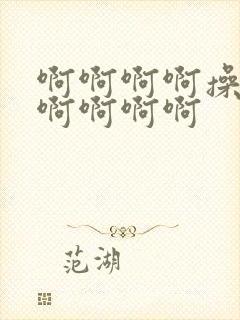 啊啊啊啊操
啊啊啊啊
范湖